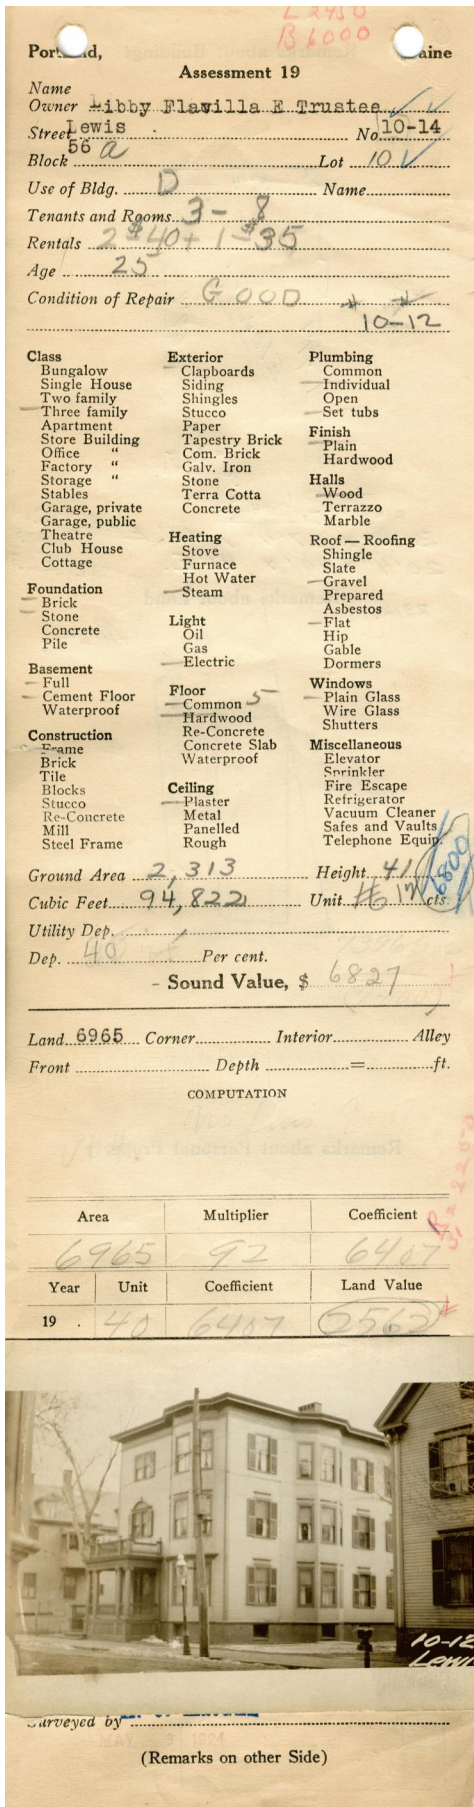 L 2450
B 6000
Portland, Maine
Assessment 19
Name
Owner Libby Flavilla E Trustee
Street Lewis No. 10-14
Block 56 a Lot 10
Use of Bldg. D Name
Tenants and Rooms 3 - 8
Rentals 2 - $40 + 1 - $35
Age 25
Condition of Repair GOOD
10-12
Class
Bungalow
Single House
Two family
Three family
Apartment
Store Building
Office "
Factory "
Storage "
Stables
Garage, private
Garage, public
Theatre
Club House
Cottage
Foundation
Brick
Stone
Concrete
Pile
Basement
Full
Cement Floor
Waterproof
Construction
Frame
Brick
Tile
Blocks
Stucco
Re-Concrete
Mill
Steel Frame
Exterior
Clapboards
Siding
Shingles
Stucco
Paper
Tapestry Brick
Com. Brick
Galv. Iron
Stone
Terra Cotta
Concrete
Heating
Stove
Furnace
Hot Water
Steam
Light
Oil
Gas
Electric
Floor
Common 5
Hardwood
Re-Concrete
Concrete Slab
Waterproof
Ceiling
Plaster
Metal
Panelled
Rough
Plumbing
Common
Individual
Open
Set tubs
Finish
Plain
Hardwood
Halls
Wood
Terrazzo
Marble
Roof — Roofing
Shingle
Slate
Gravel
Prepared
Asbestos
Flat
Hip
Gable
Dormers
Windows
Plain Glass
Wire Glass
Shutters
Miscellaneous
Elevator
Sprinkler
Fire Escape
Refrigerator
Vacuum Cleaner
Safes and Vaults
Telephone Equip.
6800
Ground Area 2,313 Height 41
Cubic Feet 94,822 Unit 12 cts.
Utility Dep.
Dep. 40 Per cent.
- Sound Value, $ 6827
Land 6965 Corner Interior Alley
Front Depth = ft.
COMPUTATION
Area Multiplier Coefficient
6965 92 6407
Year Unit Coefficient Land Value
19 40 6407 2563
10-12
Lewis
Surveyed by
(Remarks on other Side)